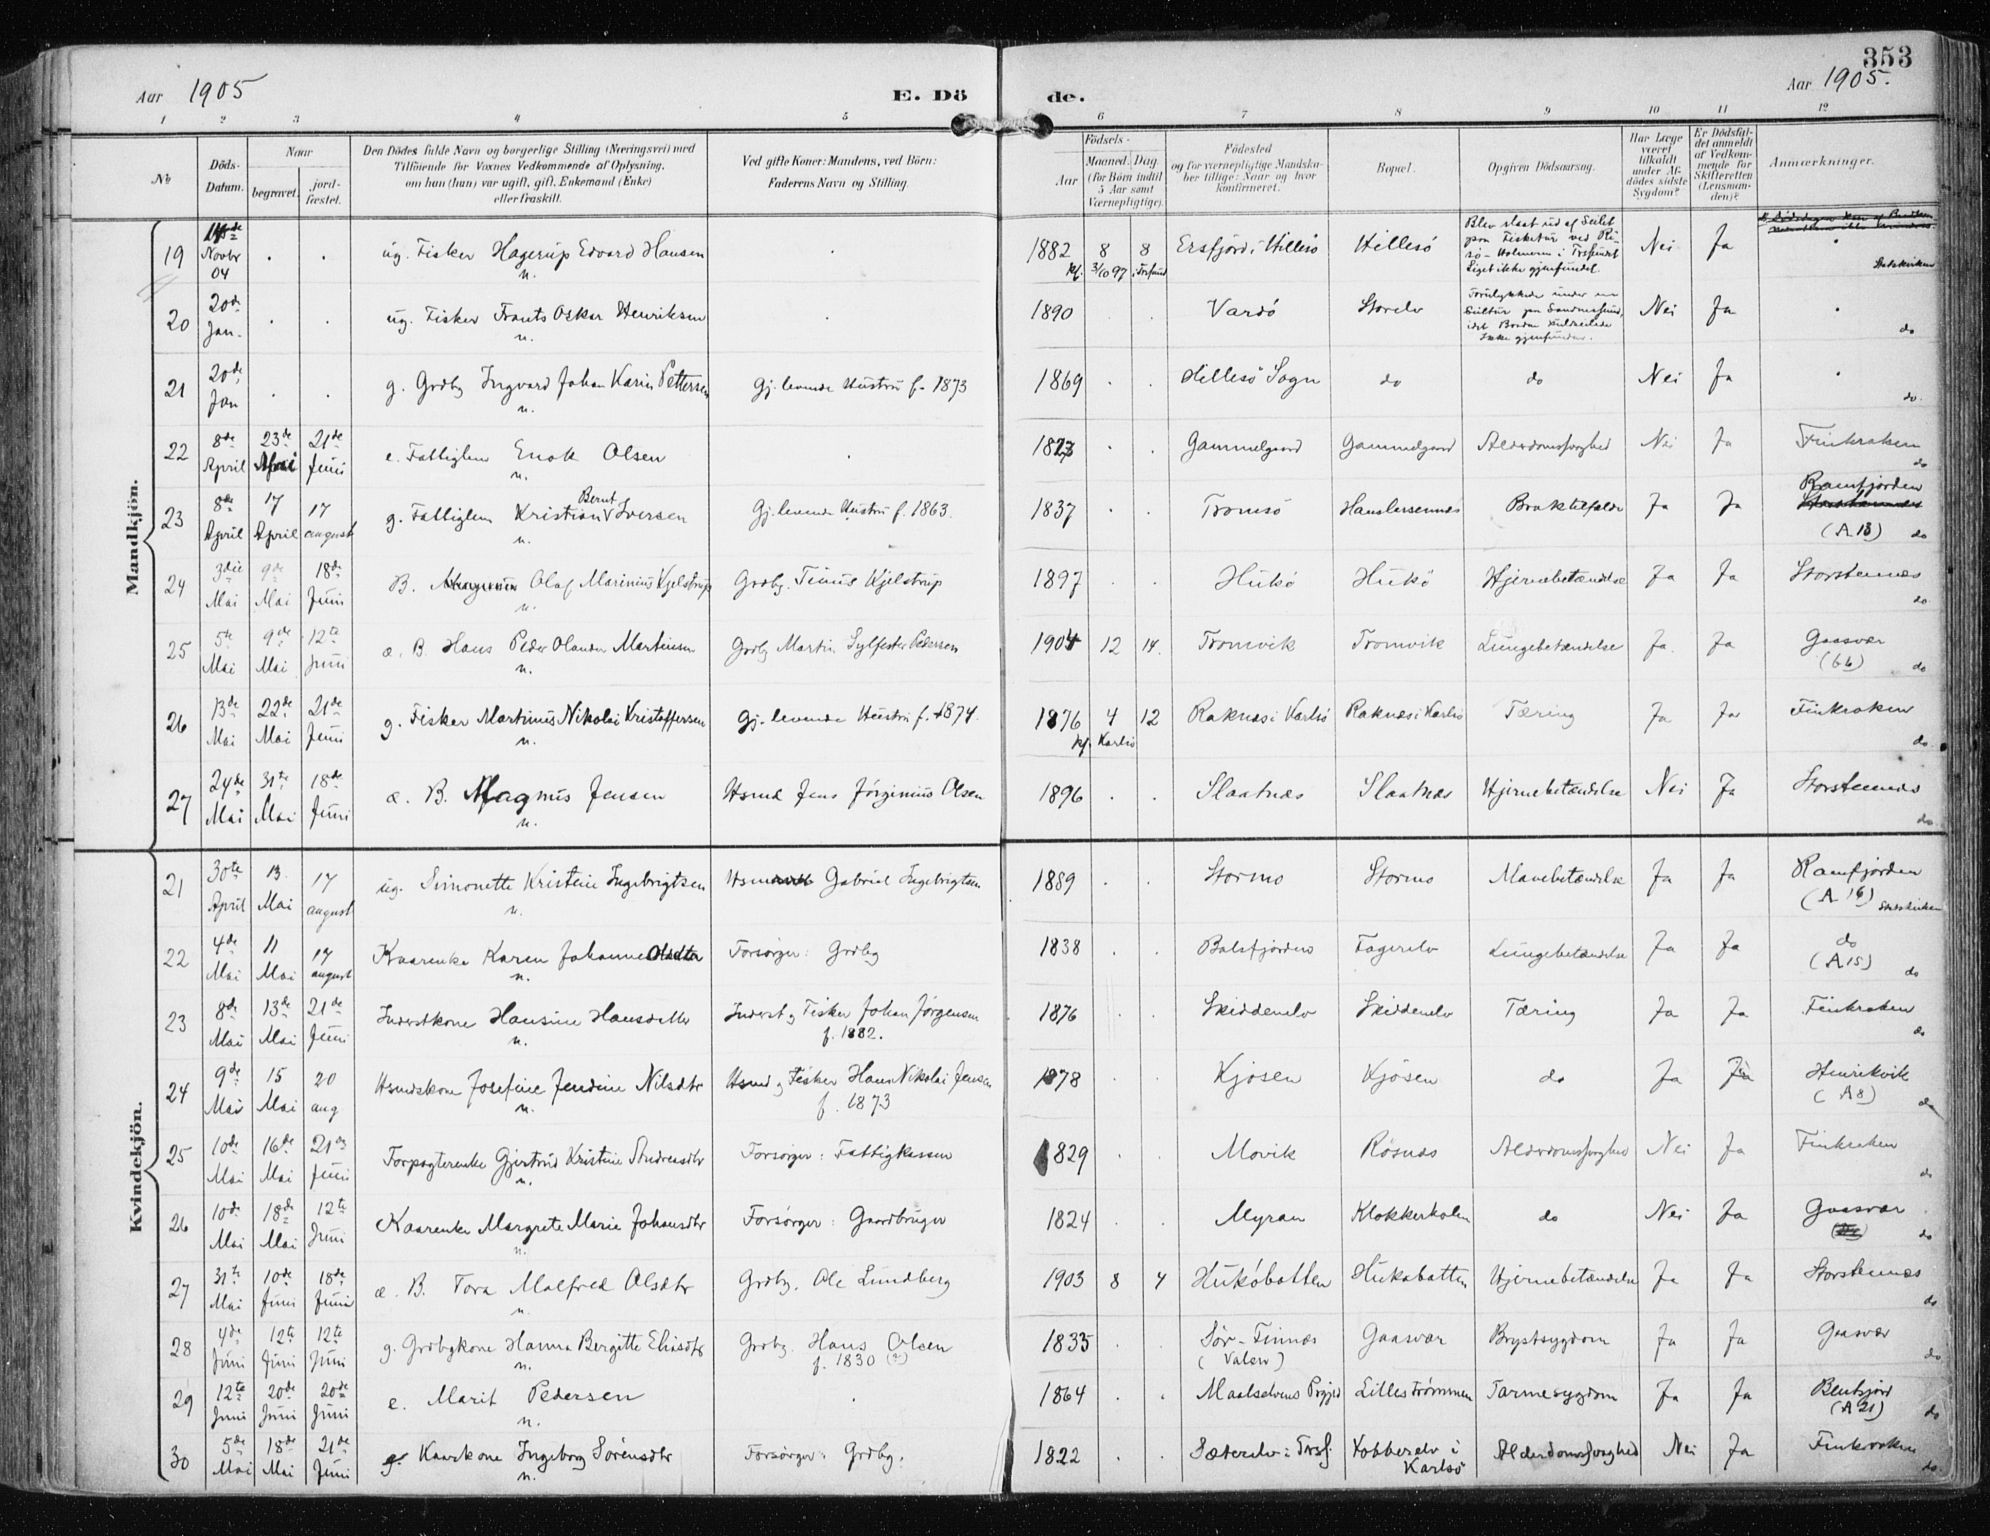 353
Aar 1905
E. Dö
de.
Aar 1905.
1 2 3 4 5 6 7 8 9 10 11 12
No
Döds-
Datum.
Naar
begravet.
jord-
fæstet.
Den Dödes fulde Navn og borgerlige Stilling (Næringsvei) med
Tilföiende for Voxnes Vedkommende af Oplysning,
om han (hun) var ugift, gift, Enkemand (Enke)
eller fraskilt.
Ved gifte Koner: Mandens, ved Börn:
Faderens Navn og Stilling.
Födsels-
Aar
Maaned. Dag
(for Börn indtil
5 Aar samt
Værnepligtige).
Födested
og for værnepligtige Mandska-
ber tillige: Naar og hvor
konfirmeret.
Bopæl.
Opgiven Dödsaarsag.
Har Læge
været
tilkaldt
under Af-
dödes sidste
Sygdom?
Er Dödsfal-
det anmeldt
af Vedkom-
mende for
Skifteretten
(Lensman-
den)?
Anmærkninger.
Mandkjön.
19 Novbr 04 . . ug. Fisker Hagerup Edvard Hansen . 1882 8 8 Ersfjord i Hillesö Hillesö Nei Ja
n. kf. 3/10 97
Blev slaat ud af Seilet
paa Fisketur ved Ri-
sö-Holmerne i Trsfsundet
Liget ikke gjenfundet.
20 20de Jan. . . ug. Fisker Frants Oskar Henriksen . 1890 . . Vardö Storelv Nei Ja do
n.
Forulykkede under en
Ikke gjenfunden.
21 20de Jan . . g. Grdbr Ingvard Johan Karin Pettersen Gj. levende Hustru f. 1873 1869 . . Hillesö Sogn do do Nei Ja do.
n.
22 8de April 23de Mai 21de Juni e. Fattiglem Enok Olsen . 1823 . . Gammelgaard Gammelgaard Alderdomssvaghed Nei Ja Finkroken do
n.
23 8de April 17 April 17 august g. Fattiglem Kristian Bernt Iversen Gj. levende Hustru f. 1863. 1837 . . Tromsö Hanslarsennæs Braktilfælde Ja Ja Ramfjorden
n. (A 13) do
24 3die Mai 9de Mai 18de Juni B. Olaf Marinius Kjelstrup Grdbr. Tinus Kjelstrup 1897 . . Hukö Hukö Hjernebetændelse Ja Ja Storstennæs do.
n.
25 5te Mai 9de Mai 12te Juni æ. B. Hans Peder Olander Martinsen Grdbr Martin Sylfester Pedersen 1904 12 14. Tromvik Tromvik Lungebetændelse Ja. Ja Gaasvær
n. (66) do
26 13de Mai 22de Mai 21de Juni g. Fisker Martinus Nikolai Kristoffersen Gj. levende Hustru f. 1874. 1876 4 12 Raknæs i Karlsö Raknæs i Karlsö Tæring Ja Ja Finkroken do.
n. kf. Karlsö
27 24de Mai 31te Mai 18de Juni æ. B. Magnus Jensen Hsmd Jens Jörginius Olsen 1896 . . Slaatnæs Slaatnæs Hjernebetændelse Nei Ja Storstennæs do.
n.
Kvindekjön.
21 30te April 13. Mai 17 august ug. Simonette Kristine Ingebrigtsen Hsmand Gabriel Ingebrigtsen 1889 . . Stormo Stormo Mavebetændelse Ja Ja Ramfjorden
n. (A 16)
22 4de Mai 11 Mai 17 august Kaarenke Karen Johanne Olsdtr Forsörger: Grdbr 1838 . . Balsfjorden Fagerelv Lungebetændelse Ja Ja do
n. (A 15) do
23 8de Mai 13de Mai 21de Juni Inderstkone Hansine Hansdatter Inderst og Fisker Johan Jörgensen 1876 . . Skiddenelv Skiddenelv Tæring Ja Ja Finkroken do
n. f. 1882.
24 9de Mai 15 Mai 20 aug Hsmdskone Josefine Jendine Nilsdtr Hsmd og Fisker Hans Nikolai Jensen 1878 . . Kjosen Kjösen do Ja Ja Henrikvik
n. f. 1873 (A8) do
25 10de Mai 16de Mai 21de Juni Forpagterenke Gjertrud Kristine Andreasdtr Forsörger: Fattigkassen 1829 . . Movik Rösnæs Alderdomssvaghed Nei Ja Finkroken do
n.
26 10de Mai 18de Mai 12te Juni Kaarenke Margrete Marie Johansdtr Forsörger: Gaardbruger 1824 . . Myran Klokkerholm do Nei Ja Gaasvær do
n.
27 31te Mai 10de Juni 18de Juni æ. B. Tora Malfred Olsdtr Grdbr. Ole Lundberg 1903 8 4 Huköbotten Hukøbotten Hjernebetændelse Ja Ja Storstennæs do
n.
28 4de Juni 12te Juni 12te Juni g. Grdbrkone Hanna Bergitte Eliasdtr Grdbr. Hans Olsen 1835 . . Sör-Finnæs Gaasvær Brystsygdom Ja Ja Gaasvær do
n. f. 1830 (?) (Valen)
29 12te Juni 20de Juni 20de Juni e. Marit Pedersen . 1864 . . Maalselvens Prgjd Lilleströmmen Tarmesygdom Ja Ja Bentsjord
n. (A 21) do
30 5de Mai 18de Mai 21de Juni g. Kaarkone Ingeborg Sörensdtr Forsörger: Grdbr. 1822 . . Sæterelv i Trsf. Kobberelv i Alderdomssvaghed Nei Ja Finkroken do.
n. Karlsö